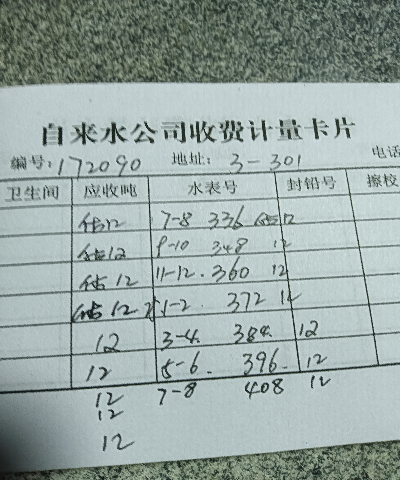 自来水公司收费计量卡片
编号: 172090 地址: 3-301 电话
卫生间 应收吨 水表号 封铅号 擦校
估12 7-8 336 估12
估12 9-10 348 12
估12 11-12. 360 12
估12 1-2. 372 12
12 3-4. 384. 12
12 5-6. 396. 12
12 7-8 408 12
12
12